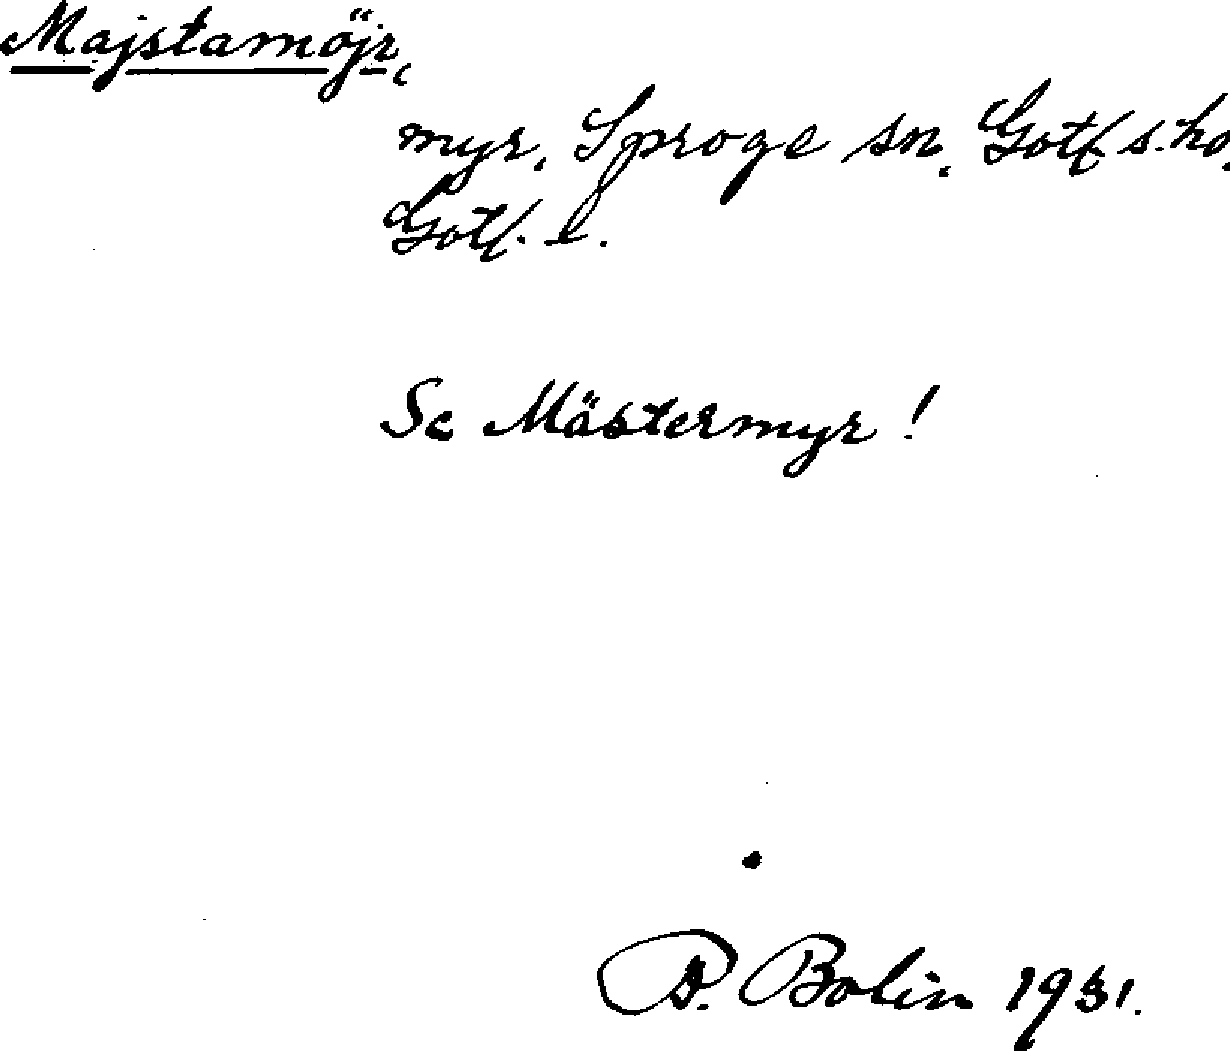 Majstamöjr,
myr, Sproge sn, Gotl. s. hd,
Gotl. l.
Se Mästermyr!
P. Bolin 1931.